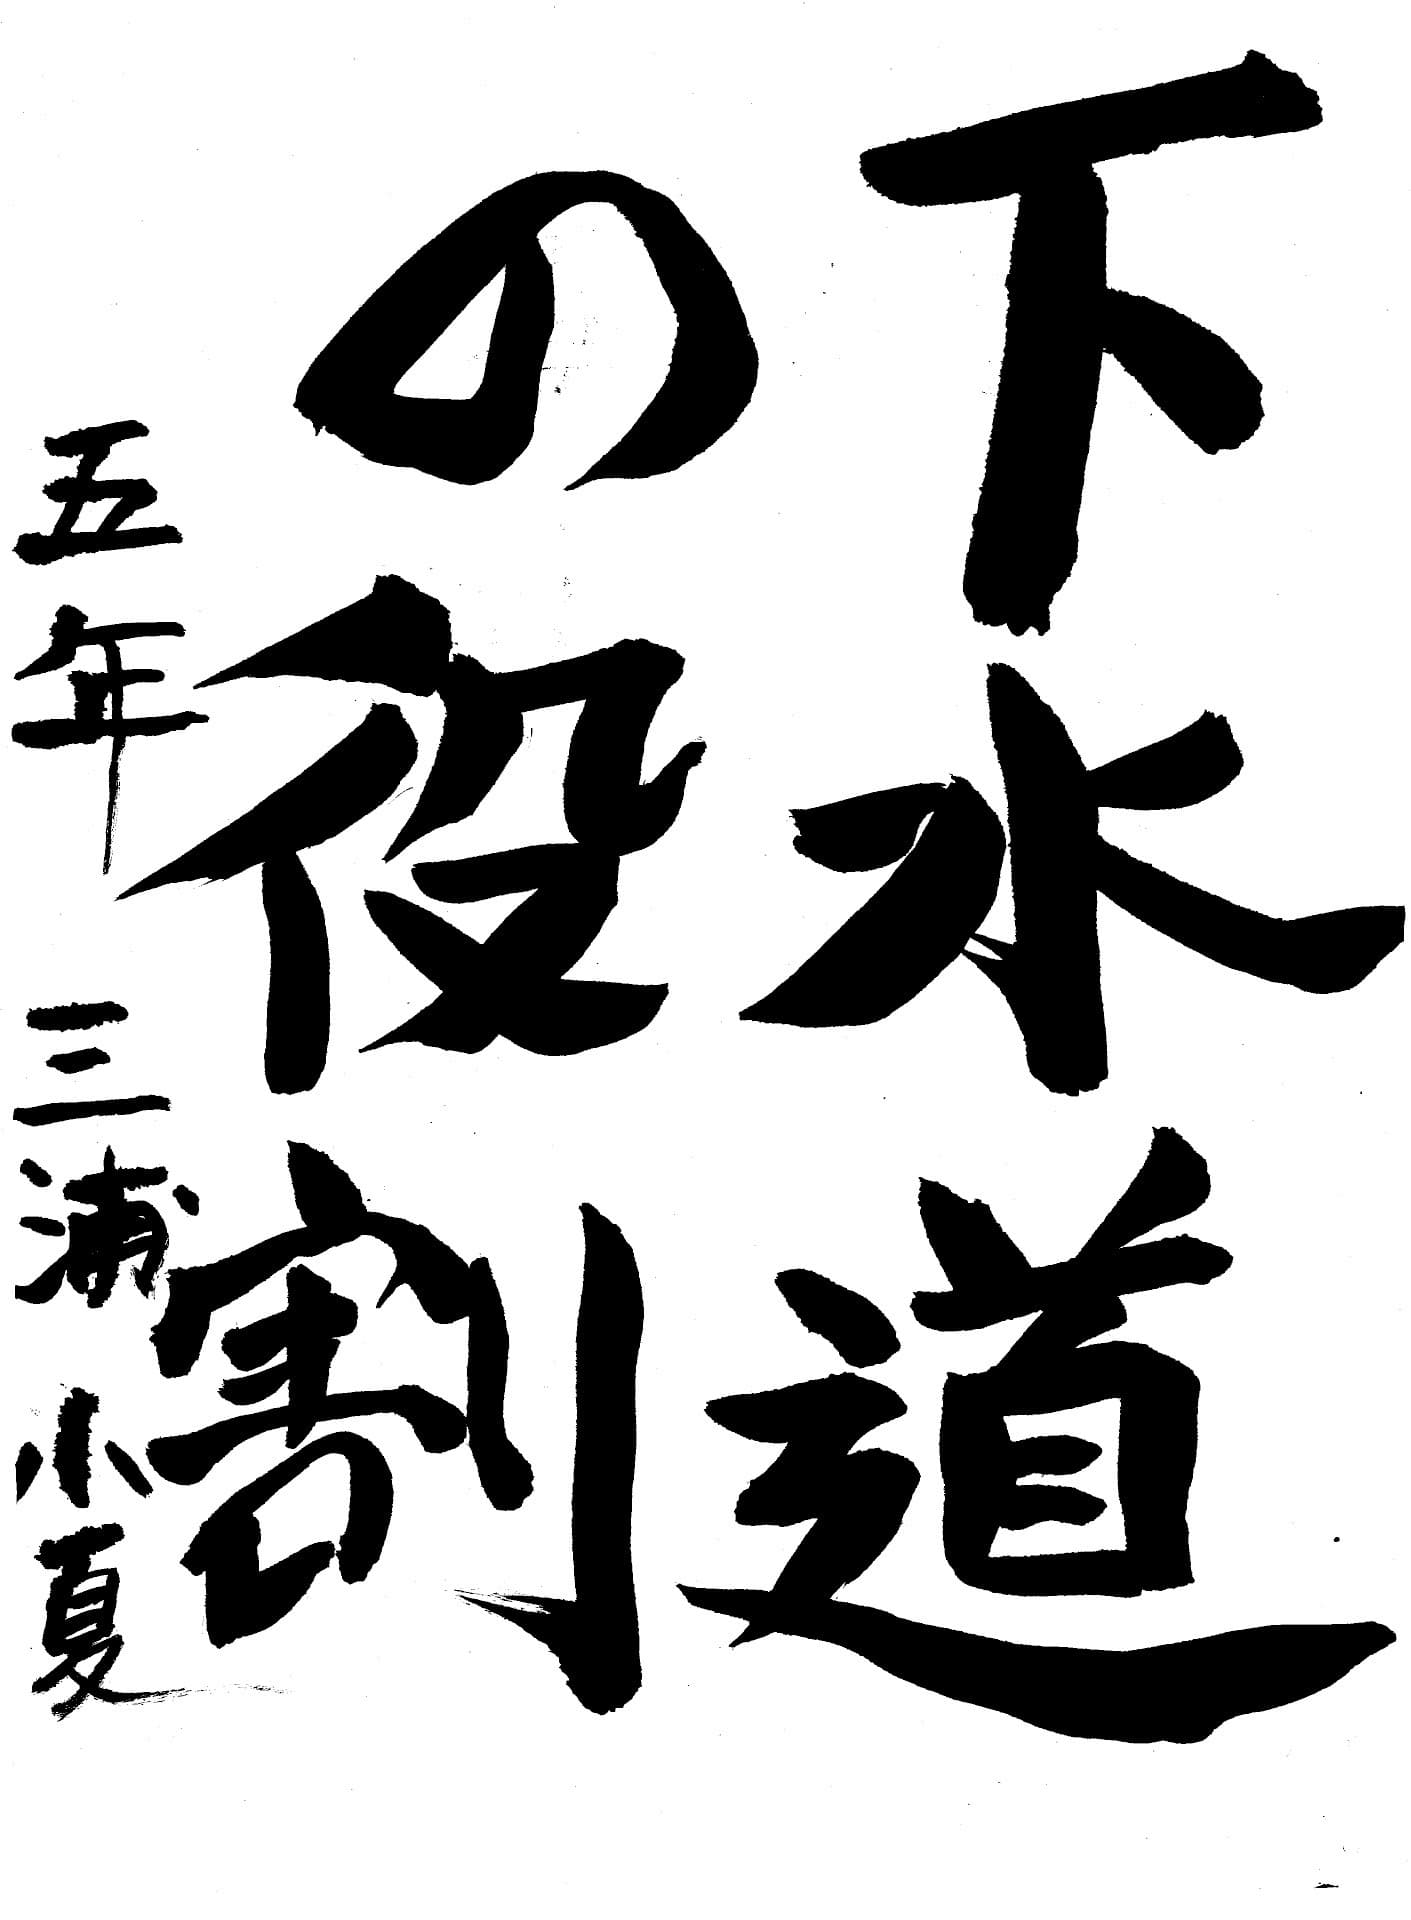 下水道
の役割
五年 三浦小夏